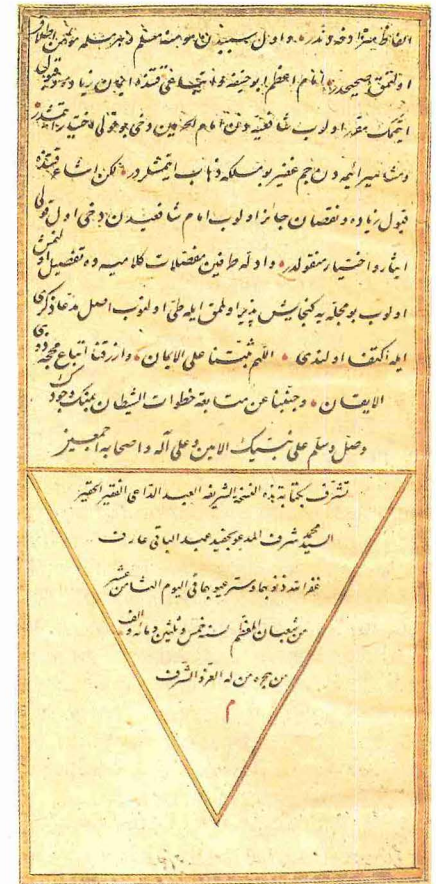 الفاظ مترادفه‌دندر و اول سببدن هر مؤمنه مسلم و هر مسلمه مؤمن اطلاق
اولنمق صحیحدر امام اعظم ابو حنیفه
ایتمك مقرر اولوب شافعیه‌دن امام الحرمین دخی بو قولی اختیار ایتمشدر
و مشاهیر ائمه‌دن جم غفیر بو مسلكه ذهاب ایتمشلردر لكن اشاعره قتنده
قبول زیاده و نقصان جائز اولوب امام شافعیدن دخی اول قولی
ایثار و اختیار منقولدر و ادله طرفین مفصلات كلامیه‌ده تفصیل اولنمش
اولوب بو مجله‌یه كنجایش پذیر اولمق ایله طی اولنوب اصل مدعا ذكری
ایله اكتفا اولندی اللهم ثبتنا علی الایمان وارزقنا اتباع محجة ذوی
الایقان وجنبنا عن متابعة خطوات الشیطان بمنك وجودك
وصل وسلم علی نبیك الامین وعلی آله واصحابه اجمعین
تشرف بكتابة هذه النسخة الشریفه العبد الداعی الفقیر الحقیر
السید محمد شرف المدعو بحفید عبد الباقی عارف
غفر الله ذنوبهما وستر عیوبهما فی الیوم الثامن عشر
من شعبان المعظم لسنه خمس وثلثین ومائه والف
من هجرة من له العز والشرف
م